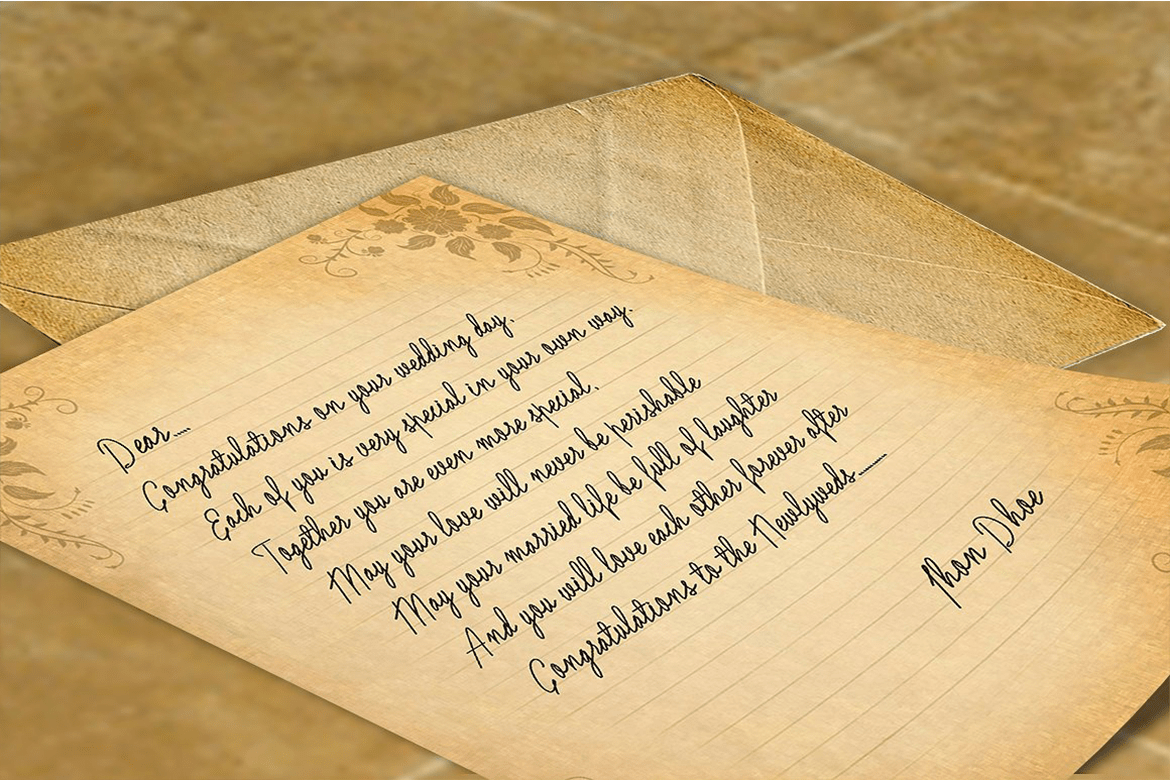 Dear.....
Congratulations on your wedding day.
Each of you is very special in your own way.
Together you are even more special.
May your love will never be perishable
May your married life be full of laughter
And you will love each other forever after
Congratulations to the Newlyweds..........
Jhon Dhoe